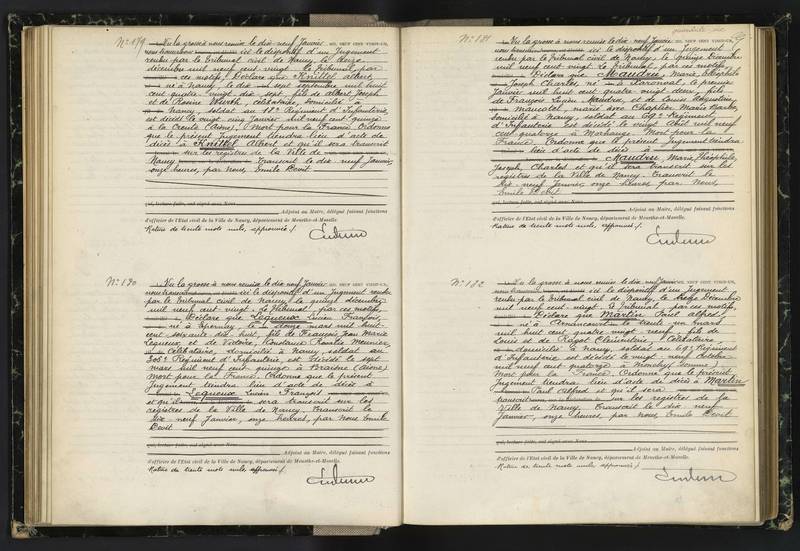 N° 179
Vu la grosse à nous remise le dix neuf Janvier MIL NEUF CENT VINGT-UN,
nous transcrivons ici le dispositif d'un Jugement
rendu par le Tribunal civil de Nancy, le
décembre mil neuf cent vingt. Le Tribunal, par
ces motifs, Déclare que Knittel Albert,
né à Nancy, le dix sept septembre mil huit
cent quatre vingt dix sept, fils de Albert Joseph
et de Rosine célibataire, domicilié à
Nancy, soldat au Régiment d'Infanterie,
est décédé le vingt cinq Janvier mil neuf cent quinze
à la Creute (Aisne), Mort pour la France. Ordonne
que le présent Jugement tiendra lieu d'acte de
décès à Knittel Albert et qu'il sera transcrit
sur les registres de la Ville de
Nancy. Transcrit le dix neuf Janvier,
onze heures, par Nous, Emile Devit
qui, lecture faite, ont signé avec Nous
Adjoint au Maire, délégué faisant fonctions
d'officier de l'Etat civil de la Ville de Nancy, département de Meurthe-et-Moselle.
Rature de trente mots nuls, approuvés /.
N° 180
Vu la grosse à nous remise le dix neuf Janvier MIL NEUF CENT VINGT-UN,
nous transcrivons ici le dispositif d'un Jugement rendu
par le Tribunal civil de Nancy, le quinze décembre
mil neuf cent vingt. Le Tribunal, par ces motifs,
Déclare que Legueux Lucien François,
né à Epernay le douze mars mil huit
cent soixante dix huit, fils de François Jean Marie
Legueux et de Victoire, Constance Rosalie Meunier,
célibataire, domicilié à Nancy, soldat au
Régiment d'Infanterie, est décédé le sept
mars mil neuf cent quinze à Braisne (Aisne)
Mort pour la France. Ordonne que le présent
Jugement tiendra lieu d'acte de décès à
Legueux Lucien François
et qu'il sera transcrit sur les
registres de la Ville de Nancy. Transcrit le
dix neuf Janvier, onze heures, par Nous Emile
Devit
qui, lecture faite, ont signé avec Nous
Adjoint au Maire, délégué faisant fonctions
d'officier de l'Etat civil de la Ville de Nancy, département de Meurthe-et-Moselle.
Rature de trente mots nuls, approuvés /.
N° 181
Vu la grosse à nous remise le dix neuf Janvier MIL NEUF CENT VINGT-UN,
nous transcrivons ici le dispositif d'un Jugement
rendu par le Tribunal civil de Nancy, le quinze décembre
mil neuf cent vingt. Le Tribunal, par ces motifs,
Déclare que Maudru, Marie, Théophile,
Joseph, Charles, né à le premier
Janvier mil huit cent quatre vingt deux, fils
de François Lucien Maudru, et de Louise Augustine
Mauscolet, marié avec Marie Marthe,
domicilié à Nancy, soldat au 69e Régiment
d'Infanterie est décédé le vingt août mil neuf
cent quatorze à Morhange. Mort pour la
France. Ordonne que le présent Jugement tiendra
lieu d'acte de décès à
Maudru Marie Théophile,
Joseph, Charles et qu'il sera transcrit sur les
registres de la Ville de Nancy. Transcrit le
dix neuf Janvier, onze heures, par Nous,
Emile Devit
qui, lecture faite, ont signé avec Nous
Adjoint au Maire, délégué faisant fonctions
d'officier de l'Etat civil de la Ville de Nancy, département de Meurthe-et-Moselle.
Rature de trente mots nuls, approuvés /.
N° 182
Vu la grosse à nous remise le dix neuf Janvier MIL NEUF CENT VINGT-UN,
nous transcrivons ici le dispositif d'un Jugement
rendu par le Tribunal civil de Nancy, le treize Décembre
mil neuf cent vingt. Le Tribunal, par ces motifs,
Déclare que Martin Paul Alfred,
né à le trente un mars
mil huit cent quatre vingt neuf, fils de
Louis et de Ragot Clémentine, célibataire,
domicilié à Nancy, soldat au 69e Régiment
d'Infanterie est décédé le vingt neuf octobre
mil neuf cent quatorze à Monchy (Somme).
Mort pour la France. Ordonne que le présent
Jugement tiendra lieu d'acte de décès à Martin
Paul Alfred et qu'il sera
transcrit sur les registres de la
Ville de Nancy. Transcrit le dix neuf
Janvier, onze heures, par nous, Emile Devit
qui, lecture faite, ont signé avec Nous
Adjoint au Maire, délégué faisant fonctions
d'officier de l'Etat civil de la Ville de Nancy, département de Meurthe-et-Moselle.
Rature de trente mots nuls, approuvés /.